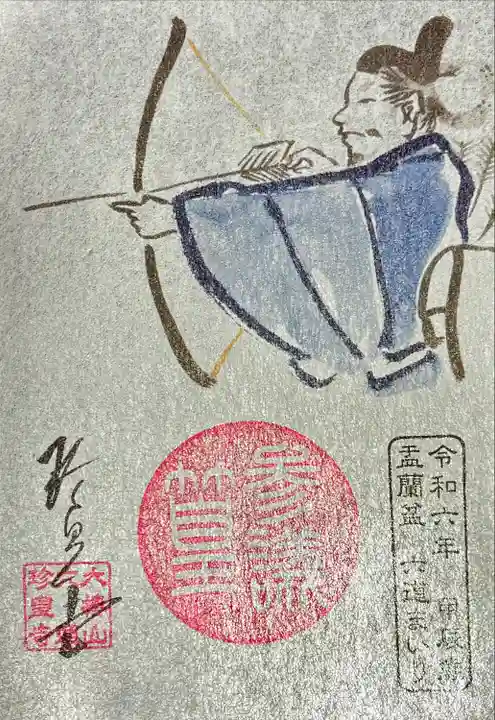 令和六年 甲辰歳
盂蘭盆 六道まいり
参議
篁
珍皇寺
大椿山
六道
珍皇寺